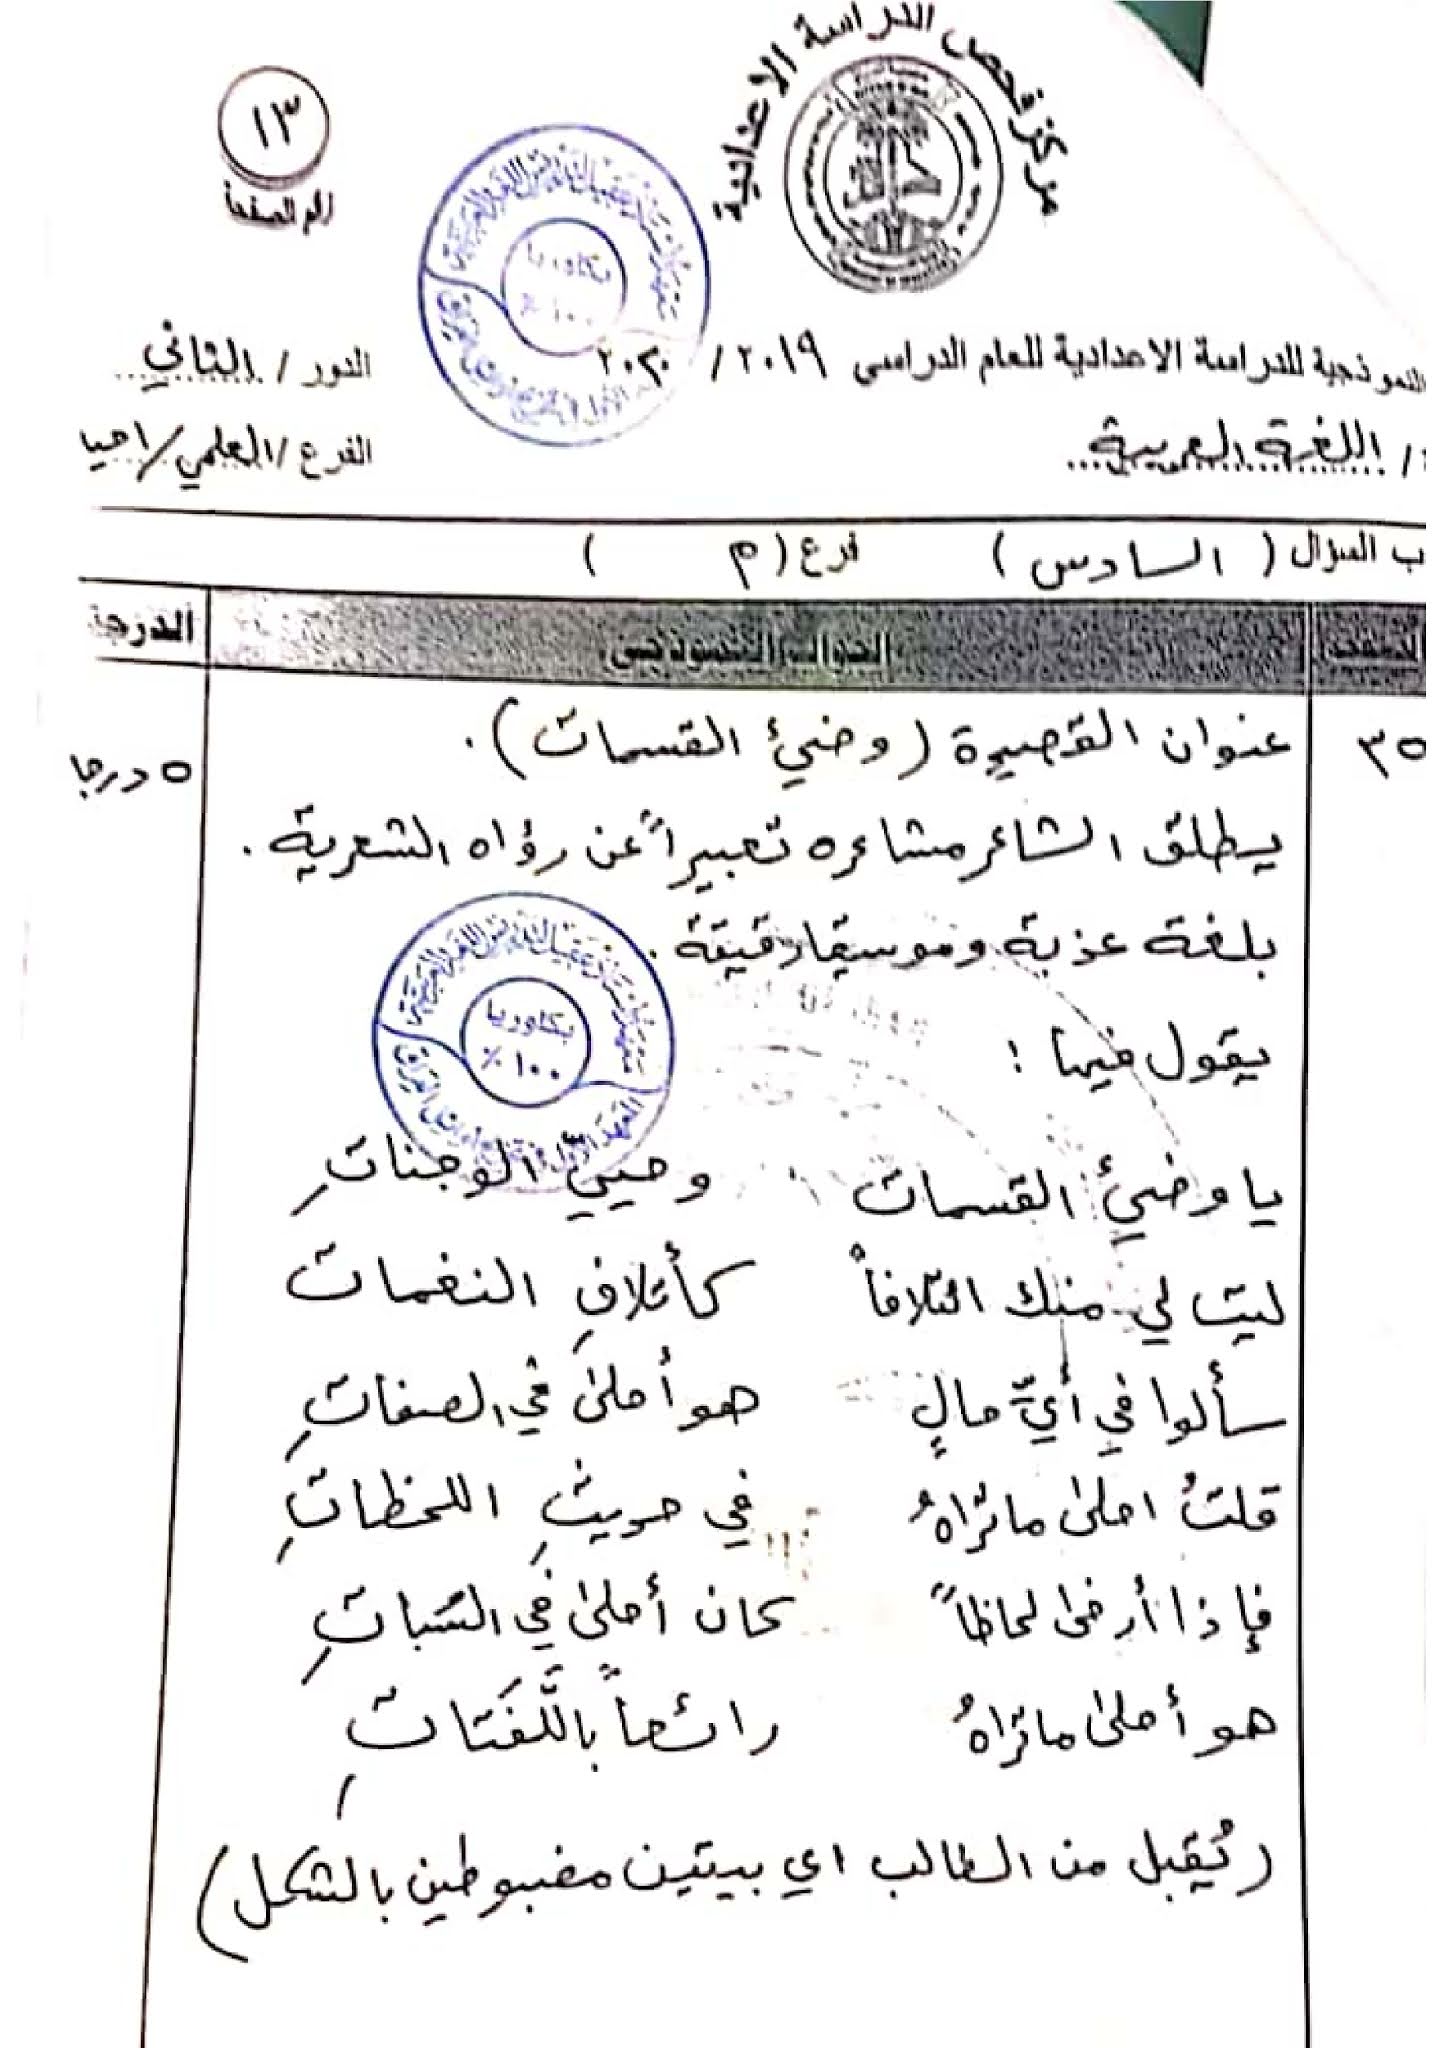 مركز فحص الدراسة الاعدادية
١٣
رقم الصفحة
بكلوريا
١٠٠ %
النموذجية للدراسة الاعدادية للعام الدراسي ٢٠١٩ / ٢٠٢٠ الدور / الثاني
/ اللغة العربية الفرع / العلمي / احيا
ب السؤال ( السادس ) فرع ( م )
الجواب النموذجي الدرجة
٣٥ عنوان القصيدة (وضيءُ القسمات). ٥ درجا
يطلق الشاعر مشاعره تعبيراً عن رؤاه الشعرية.
بلغة عذبة وموسيقا رقيقة.
يقول فيها :
يا وضيءُ القسمات وحييّ الوجناتِ
ليت لي منك ائتلافاً كأتلافِ النغمات
سألوا في أيِّ حالٍ هو أحلى في الصفاتِ
قلتُ احلى ما تراهُ في حديثِ اللحظاتِ
فإذا أرخى لحاظاً كان أحلى في السُباتِ
هو أحلى ما تراهُ رائعاً باللَّفَتاتِ
(يُقبل من الطالب اي بيتين مضبوطين بالشكل)
بكلوريا
١٠٠ %